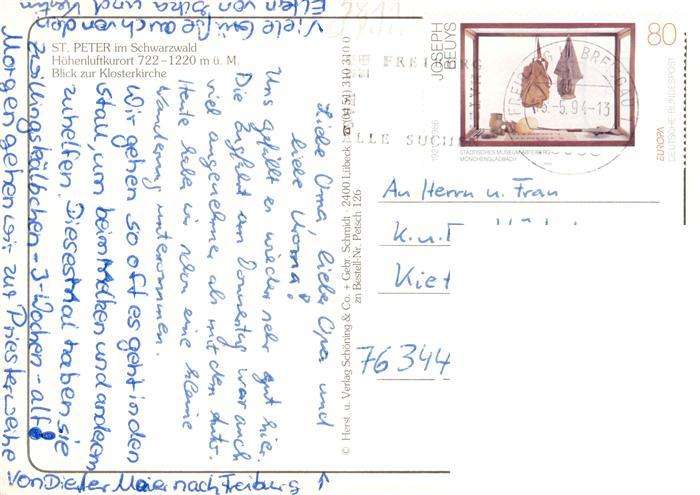 ST. PETER im Schwarzwald
Höhenluftkurort 722–1220 m ü. M.
Blick zur Klosterkirche
Liebe Oma, lieber Opa und
liebe Uroma!
Uns gefällt es wieder sehr gut hier.
Die Zugfahrt am Donnerstag war auch
viel angenehmer als mit dem Auto.
Heute haben wir schon eine kleine
Wanderung unternommen.
Wir gehen so oft es geht in den
Stall, um beim Melken und anderem
zu helfen. Diesesmal haben sie
zwillingskälbchen - 3-Wochen - alt!
Morgen gehen wir zur Priesterweihe
von Dieter Maier nach Freiburg
Viele Grüße auch von den
Eltern von
und
© Herst. u. Verlag Schöning & Co. + Gebr. Schmidt · 2400 Lübeck · ☎ (04 51) 310 310 0
zn Bestell-Nr. Petsch 126
JOSEPH
BEUYS
80
STÄDTISCHES MUSEUM ABTEIBERG
MÖNCHENGLADBACH
EUROPA
DEUTSCHE BUNDESPOST
FREI
BREISGAU
-5.94-13
LLE SUCHEN
An Herrn u. Frau
K. u. F
Kiet
76344